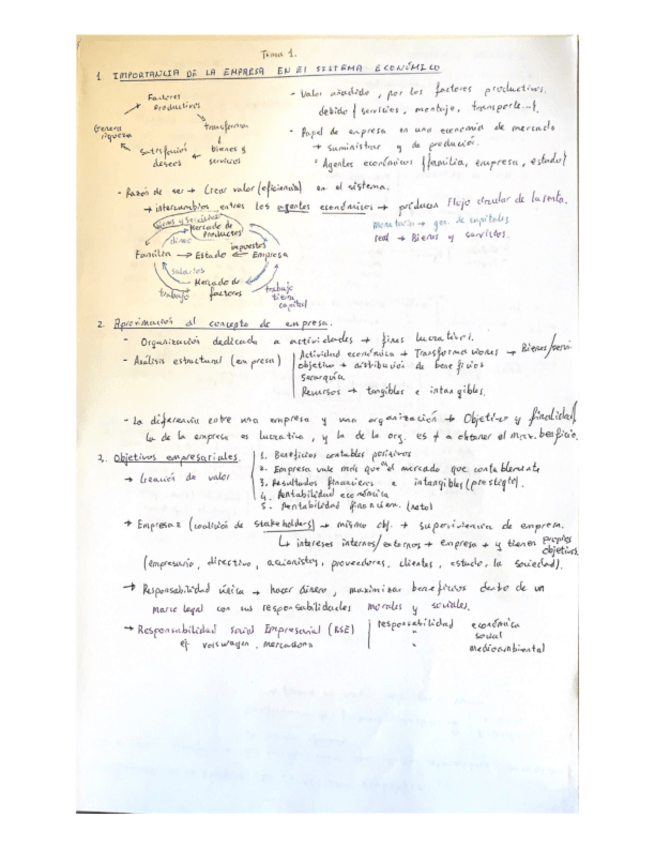 Tema 1.
1. IMPORTANCIA DE LA EMPRESA EN El SISTEMA ECONÓMICO
Factores
Productivos
transforma
bienes y
servicios
satisfacción
deseos
Genera
riqueza
- Valor añadido, por los factores productivos.
debido { servicios, montaje, transporte...}
- Papel de empresa en una economía de mercado
→ suministrar y de producción.
* Agentes económicos {familia, empresa, estado}
- Razón de ser → Crear valor (eficiencia) en el sistema.
→ intercambios entres los agentes económicos → producen flujo circular de la renta.
monetario → gen. de capitales
real → Bienes y servicios.
bienes y servicios
Mercado de
Productos
dinero
impuestos
Familia → Estado ← Empresa
salarios
Mercado de
factores
trabajo
trabajo
tierra
capital
2. Aproximación al concepto de empresa.
- Organización dedicada a actividades → fines lucrativos.
- Análisis estructural (empresa) | Actividad económica → Transformaciones → Bienes/servi.
objetivo → distribución de beneficios
Jerarquía
Recursos → tangibles e intangibles.
- La diferencia entre una empresa y una organización → Objetivo y finalidad
la de la empresa es lucrativa, y la de la org. es ≠ a obtener el max. benficio.
3. Objetivos empresariales.
→ Creación de valor
1. Beneficios contables positivos
2. Empresa vale más que en el mercado que contablemente
3. Resultados financieros e intangibles (prestigio).
4. Rentabilidad económica
5. Rentabilidad financiera. (neto)
→ Empresas (coalición de stakeholders) → mismo obj. → supervivencia de empresa.
↳ intereses internos/externos → empresa → y tienen propios
objetivos
(empresario, directivo, accionistas, proveedores, clientes, estado, la sociedad).
→ Responsabilidad única → hacer dinero, maximizar beneficios dento de un
marco legal con sus responsabilidades morales y sociales.
→ Responsabilidad Social Empresarial (RSE) | responsabilidad económica
" social
" medioambiental
ej. volswagen, mercadona